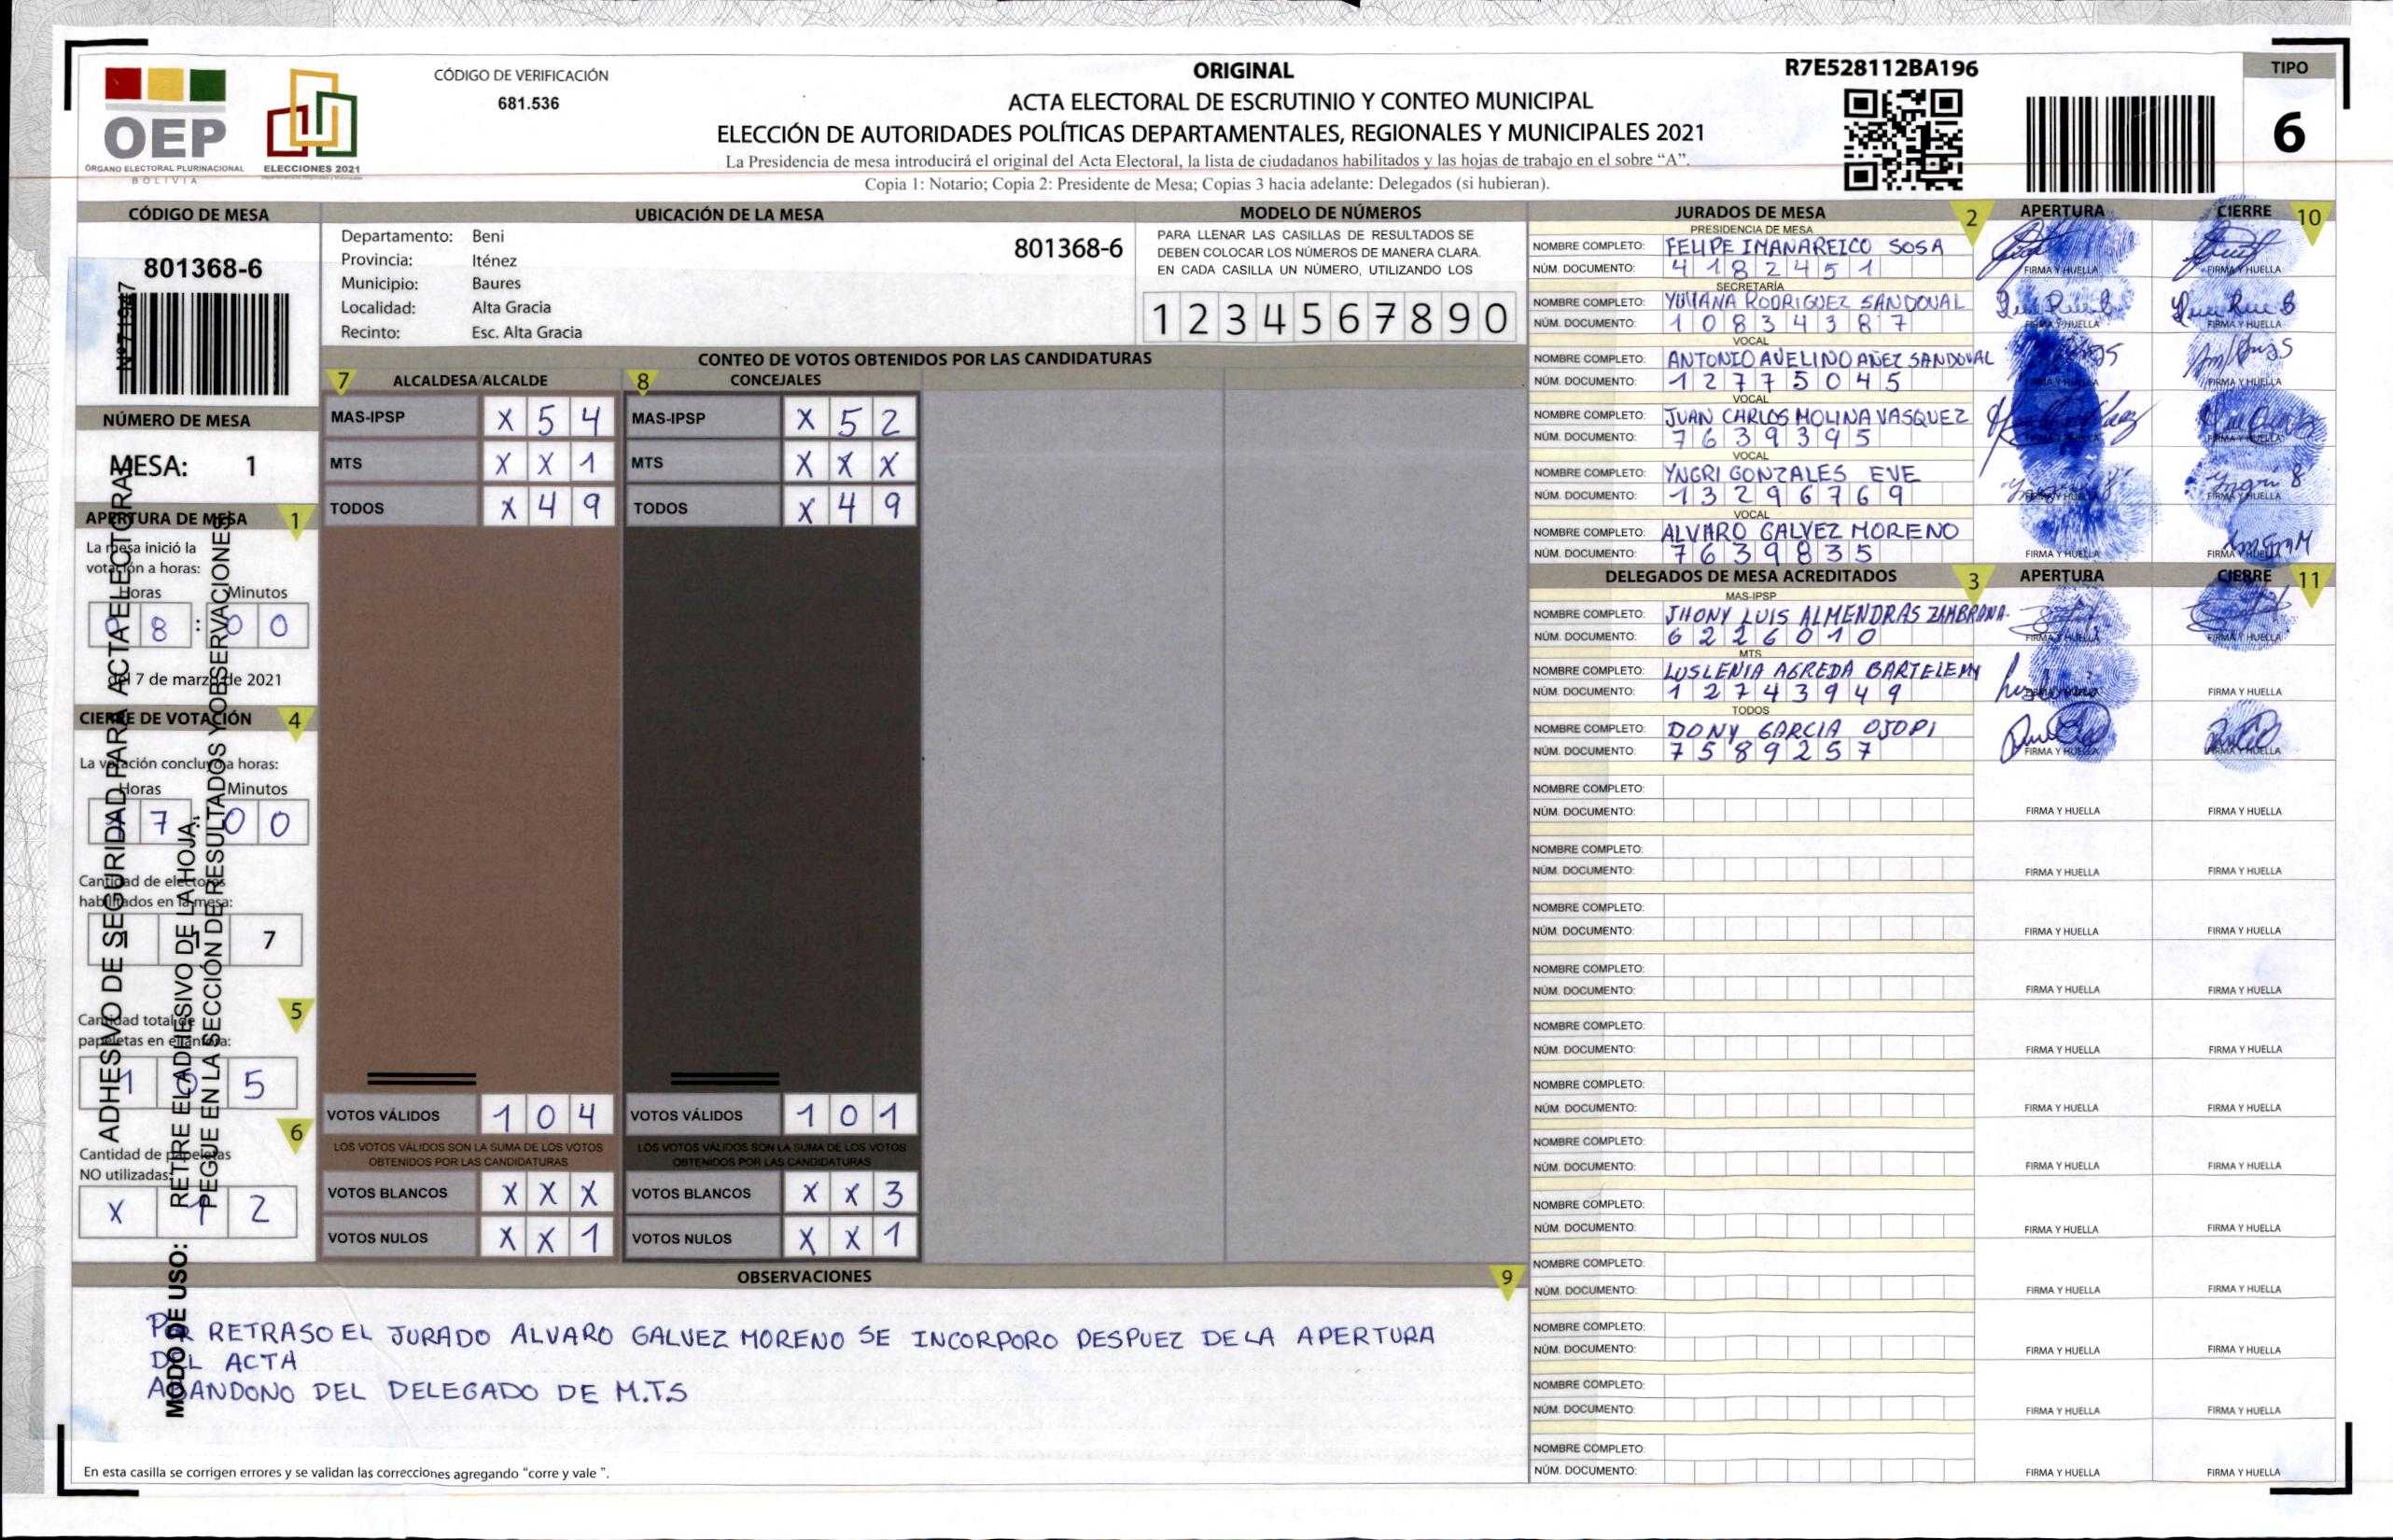 OEP
ÓRGANO ELECTORAL PLURINACIONAL
BOLIVIA
ELECCIONES 2021
CÓDIGO DE VERIFICACIÓN
681.536
ORIGINAL
ACTA ELECTORAL DE ESCRUTINIO Y CONTEO MUNICIPAL
ELECCIÓN DE AUTORIDADES POLÍTICAS DEPARTAMENTALES, REGIONALES Y MUNICIPALES 2021
La Presidencia de mesa introducirá el original del Acta Electoral, la lista de ciudadanos habilitados y las hojas de trabajo en el sobre “A”.
Copia 1: Notario; Copia 2: Presidente de Mesa; Copias 3 hacia adelante: Delegados (si hubieran).
R7E528112BA196
TIPO
6
CÓDIGO DE MESA
801368-6
NÚMERO DE MESA
MESA: 1
APERTURA DE MESA 1
La mesa inició la
votación a horas:
Horas Minutos
8 : 0 0
del 7 de marzo de 2021
CIERRE DE VOTACIÓN 4
La votación concluyó a horas:
Horas Minutos
7 0 0
Cantidad de electores
habilitados en la mesa:
7
5
Cantidad total de
papeletas en el ánfora:
1 0 5
6
Cantidad de papeletas
NO utilizadas:
X 1 2
ADHESIVO DE SEGURIDAD PARA ACTA ELECTORAL
MODO DE USO: RETIRE EL ADHESIVO DE LA HOJA.
PEGUE EN LA SECCIÓN DE RESULTADOS Y OBSERVACIONES
UBICACIÓN DE LA MESA
Departamento: Beni
Provincia: Iténez
Municipio: Baures
Localidad: Alta Gracia
Recinto: Esc. Alta Gracia
801368-6
MODELO DE NÚMEROS
PARA LLENAR LAS CASILLAS DE RESULTADOS SE
DEBEN COLOCAR LOS NÚMEROS DE MANERA CLARA.
EN CADA CASILLA UN NÚMERO, UTILIZANDO LOS
1 2 3 4 5 6 7 8 9 0
CONTEO DE VOTOS OBTENIDOS POR LAS CANDIDATURAS
7 ALCALDESA/ALCALDE
MAS-IPSP X 5 4
MTS X X 1
TODOS X 4 9
VOTOS VÁLIDOS 1 0 4
LOS VOTOS VÁLIDOS SON LA SUMA DE LOS VOTOS
OBTENIDOS POR LAS CANDIDATURAS
VOTOS BLANCOS X X X
VOTOS NULOS X X 1
8 CONCEJALES
MAS-IPSP X 5 2
MTS X X X
TODOS X 4 9
VOTOS VÁLIDOS 1 0 1
LOS VOTOS VÁLIDOS SON LA SUMA DE LOS VOTOS
OBTENIDOS POR LAS CANDIDATURAS
VOTOS BLANCOS X X 3
VOTOS NULOS X X 1
OBSERVACIONES 9
POR RETRASO EL JURADO ALVARO GALVEZ MORENO SE INCORPORO DESPUEZ DE LA APERTURA
DEL ACTA
ABANDONO DEL DELEGADO DE M.T.S
En esta casilla se corrigen errores y se validan las correcciones agregando “corre y vale ”.
JURADOS DE MESA 2 APERTURA CIERRE 10
PRESIDENCIA DE MESA
NOMBRE COMPLETO: FELIPE IMANAREICO SOSA
NÚM. DOCUMENTO: 4 1 8 2 4 5 1 FIRMA Y HUELLA FIRMA Y HUELLA
SECRETARÍA
NOMBRE COMPLETO: YULIANA RODRIGUEZ SANDOVAL
NÚM. DOCUMENTO: 1 0 8 3 4 3 8 7 FIRMA Y HUELLA FIRMA Y HUELLA
VOCAL
NOMBRE COMPLETO: ANTONIO AVELINO AÑEZ SANDOVAL
NÚM. DOCUMENTO: 1 2 7 7 5 0 4 5 FIRMA Y HUELLA
VOCAL
NOMBRE COMPLETO: JUAN CARLOS MOLINA VASQUEZ
NÚM. DOCUMENTO: 7 6 3 9 3 9 5 FIRMA Y HUELLA
VOCAL
NOMBRE COMPLETO: YNGRI GONZALES EVE
NÚM. DOCUMENTO: 1 3 2 9 6 7 6 9 FIRMA Y HUELLA FIRMA Y HUELLA
VOCAL
NOMBRE COMPLETO: ALVARO GALVEZ MORENO
NÚM. DOCUMENTO: 7 6 3 9 8 3 5 FIRMA Y HUELLA FIRMA Y HUELLA
DELEGADOS DE MESA ACREDITADOS 3 APERTURA CIERRE 11
MAS-IPSP
NOMBRE COMPLETO: JHONY LUIS ALMENDRAS ZAMBRANA
NÚM. DOCUMENTO: 6 2 2 6 0 1 0 FIRMA Y HUELLA FIRMA Y HUELLA
MTS
NOMBRE COMPLETO: LUSLENIA AGREDA BARTELEMY
NÚM. DOCUMENTO: 1 2 7 4 3 9 4 9 FIRMA Y HUELLA
TODOS
NOMBRE COMPLETO: DONY GARCIA OJOPI
NÚM. DOCUMENTO: 7 5 8 9 2 5 7 FIRMA Y HUELLA FIRMA Y HUELLA
NOMBRE COMPLETO:
NÚM. DOCUMENTO: FIRMA Y HUELLA FIRMA Y HUELLA
NOMBRE COMPLETO:
NÚM. DOCUMENTO: FIRMA Y HUELLA FIRMA Y HUELLA
NOMBRE COMPLETO:
NÚM. DOCUMENTO: FIRMA Y HUELLA FIRMA Y HUELLA
NOMBRE COMPLETO:
NÚM. DOCUMENTO: FIRMA Y HUELLA FIRMA Y HUELLA
NOMBRE COMPLETO:
NÚM. DOCUMENTO: FIRMA Y HUELLA FIRMA Y HUELLA
NOMBRE COMPLETO:
NÚM. DOCUMENTO: FIRMA Y HUELLA FIRMA Y HUELLA
NOMBRE COMPLETO:
NÚM. DOCUMENTO: FIRMA Y HUELLA FIRMA Y HUELLA
NOMBRE COMPLETO:
NÚM. DOCUMENTO: FIRMA Y HUELLA FIRMA Y HUELLA
NOMBRE COMPLETO:
NÚM. DOCUMENTO: FIRMA Y HUELLA FIRMA Y HUELLA
NOMBRE COMPLETO:
NÚM. DOCUMENTO: FIRMA Y HUELLA FIRMA Y HUELLA
NOMBRE COMPLETO:
NÚM. DOCUMENTO: FIRMA Y HUELLA FIRMA Y HUELLA
NOMBRE COMPLETO:
NÚM. DOCUMENTO: FIRMA Y HUELLA FIRMA Y HUELLA